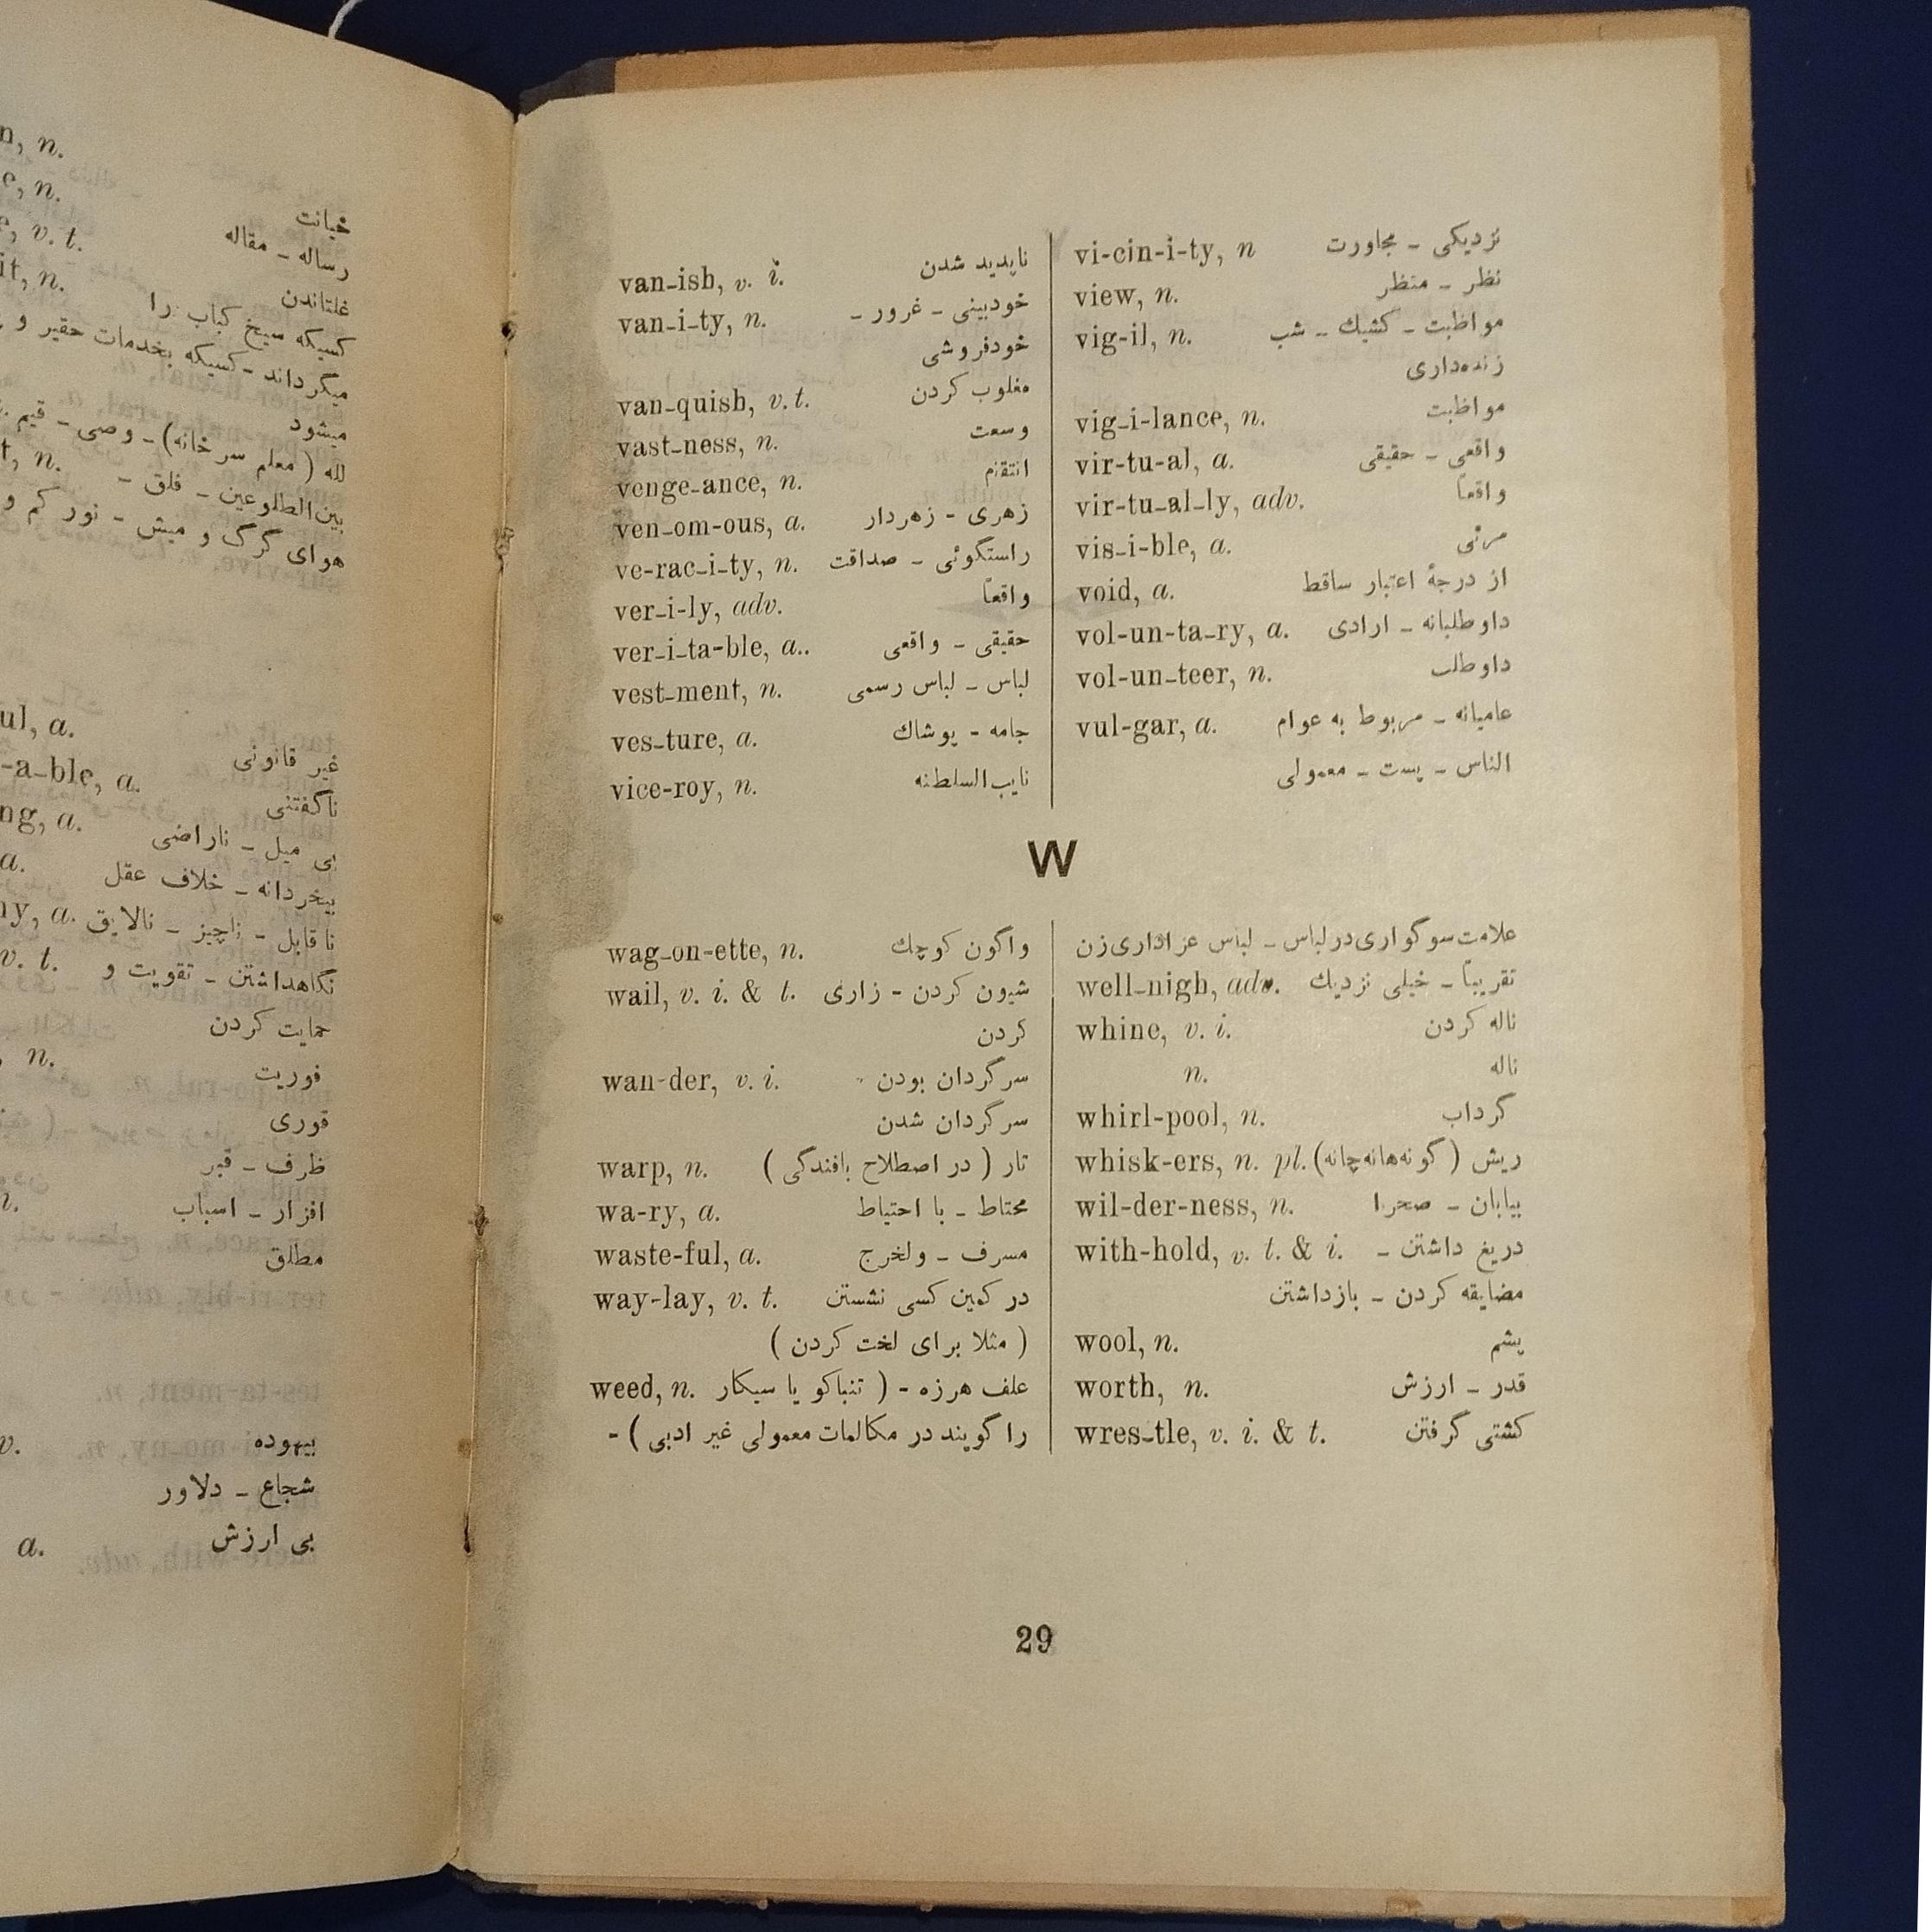 n, n.
e, n.
خیانت
e, v. t.
رساله ـ مقاله
it, n.
غلتاندن
کسیکه سیخ کباب را
میگرداند ـ کسیکه بخدمات حقیر و
میشود
لله ( معلم سر خانه) ـ وصی ـ قیم
t, n.
بین‌الطلوعین ـ فلق ـ
هوای گرگ و میش ـ نور کم و
ul, a.
غیر قانونی
-a-ble, a.
ناگفتنی
ng, a.
بی میل ـ ناراضی
a.
بیخردانه ـ خلاف عقل
hy, a. ناقابل ـ ناچیز ـ نالایق
v. t. نگاهداشتن ـ تقویت و
حمایت کردن
, n.
فوریت
قوری
ظرف ـ قبر
n.
افزار ـ اسباب
مطلق
v.
بیهوده
شجاع ـ دلاور
a. بی ارزش
van-ish, v. i. ناپدید شدن
van-i-ty, n. خودبینی ـ غرور ـ
خودفروشی
van-quish, v.t. مغلوب کردن
vast-ness, n. وسعت
venge-ance, n. انتقام
ven-om-ous, a. زهری ـ زهردار
ve-rac-i-ty, n. راستگوئی ـ صداقت
ver-i-ly, adv. واقعاً
ver-i-ta-ble, a.. حقیقی ـ واقعی
vest-ment, n. لباس ـ لباس رسمی
ves-ture, a. جامه ـ پوشاك
vice-roy, n. نایب‌السلطنه
vi-cin-i-ty, n نزدیکی ـ مجاورت
view, n. نظر ـ منظر
vig-il, n. مواظبت ـ کشیك ـ شب
زنده‌داری
vig-i-lance, n. مواظبت
vir-tu-al, a. واقعی ـ حقیقی
vir-tu-al-ly, adv. واقعاً
vis-i-ble, a. مرئی
void, a. از درجهٔ اعتبار ساقط
vol-un-ta-ry, a. داوطلبانه ـ ارادی
vol-un-teer, n. داوطلب
vul-gar, a. عامیانه ـ مربوط به عوام
الناس ـ پست ـ معمولی
W
wag-on-ette, n. واگون کوچك
wail, v. i. & t. شیون کردن ـ زاری
کردن
wan-der, v. i. سرگردان بودن
سرگردان شدن
warp, n. تار ( در اصطلاح بافندگی )
wa-ry, a. محتاط ـ با احتیاط
waste-ful, a. مسرف ـ ولخرج
way-lay, v. t. در کمین کسی نشستن
( مثلا برای لخت کردن )
weed, n. علف هرزه ـ ( تنباکو یا سیگار
را گویند در مکالمات معمولی غیر ادبی ) ـ
علامت سوگواری در لباس ـ لباس عزاداری زن
well-nigh, adv. تقریباً ـ خیلی نزدیك
whine, v. i. ناله کردن
n. ناله
whirl-pool, n. گرداب
whisk-ers, n. pl. ریش ( گونه‌هانه‌چانه)
wil-der-ness, n. بیابان ـ صحرا
with-hold, v. t. & i. دریغ داشتن ـ
مضایقه کردن ـ بازداشتن
wool, n. پشم
worth, n. قدر ـ ارزش
wres-tle, v. i. & t. کشتی گرفتن
29